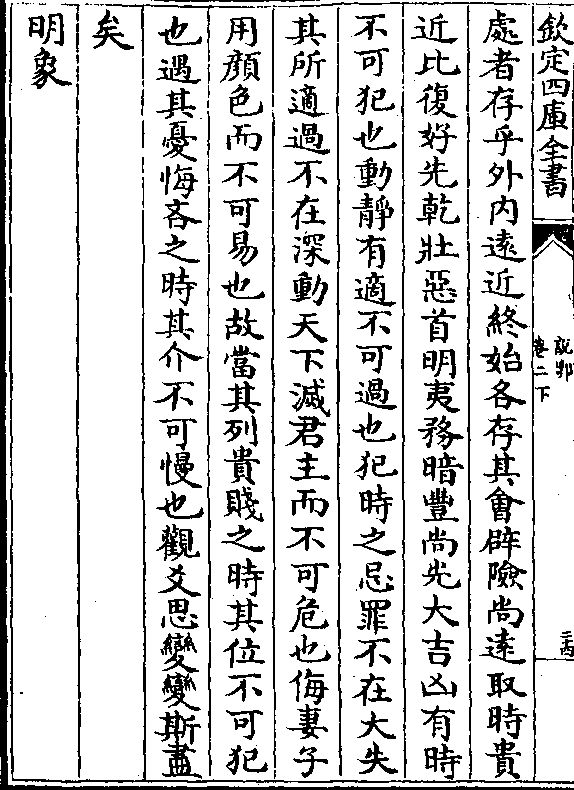 欽定四庫全書
說郛
卷二下
二四
處者存乎外内遠近終始各存其會辟險尚遠取時貴
近比復好先乾壯惡首明夷務暗豐尚光大吉凶有時
不可犯也動靜有適不可過也犯時之忌罪不在大失
其所適過不在深動天下滅君主而不可危也侮妻子
用顔色而不可易也故當其列貴賤之時其位不可犯
也遇其憂悔吝之時其介不可慢也觀爻思變變斯盡
矣
明象